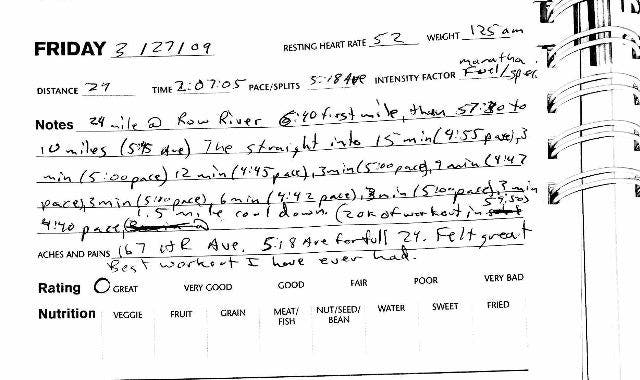 FRIDAY 3/27/09 RESTING HEART RATE 52 WEIGHT 125 am
marathon
DISTANCE 24 TIME 2:07:05 PACE/SPLITS 5:18 Ave INTENSITY FACTOR Fuel/spec.
Notes 24 mile @ Row River 6:40 first mile, then 57:30 to
10 miles (5:45 Ave) The straight into 15 min (4:55 pace), 3
min (5:00 pace) 12 min (4:45 pace), 3 min (5:00 pace), 9 min (4:47
pace), 3 min (5:00 pace), 6 min (4:42 pace), 3 min (5:00 pace), 3 min
4:40 pace, 1.5 mile cool down. (20K of workout in 59:50)
ACHES AND PAINS 167 HR Ave. 5:18 Ave for full 24. Felt great
Best workout I have ever had.
Rating GREAT VERY GOOD GOOD FAIR POOR VERY BAD
Nutrition VEGGIE FRUIT GRAIN MEAT/ NUT/SEED/ WATER SWEET FRIED
FISH BEAN